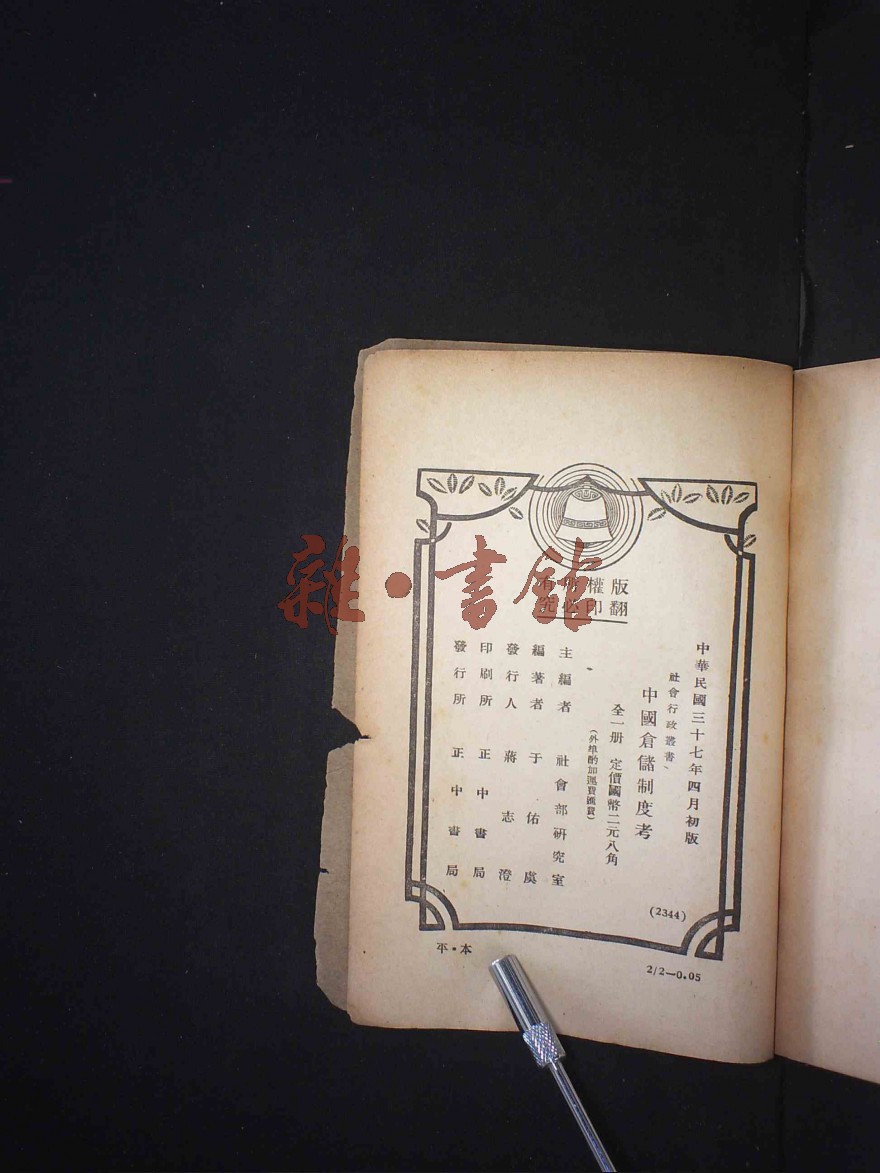 版權所有
翻印必究
中華民國三十七年四月初版
社會行政叢書
中國倉儲制度考
全一册 定價國幣二元八角
(外埠酌加運費匯費)
主編者 社會部研究室
編著者 于佑虞
發行人 蔣志澄
印刷所 正中書局
發行所 正中書局
(2344)
平·本
2/2—0.05
雜·書館